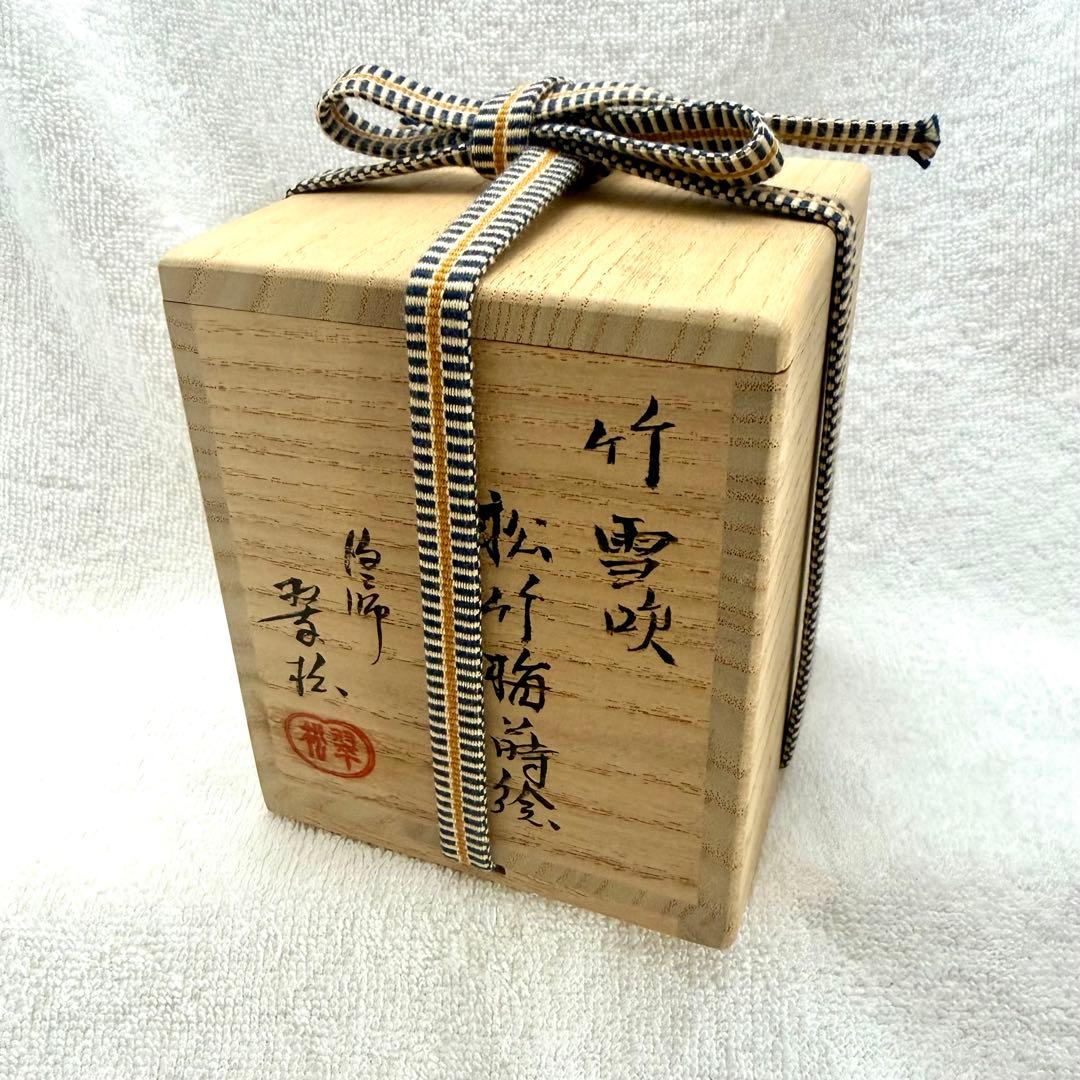 竹 雪吹
松竹梅蒔絵
塗師
翠松
翠松